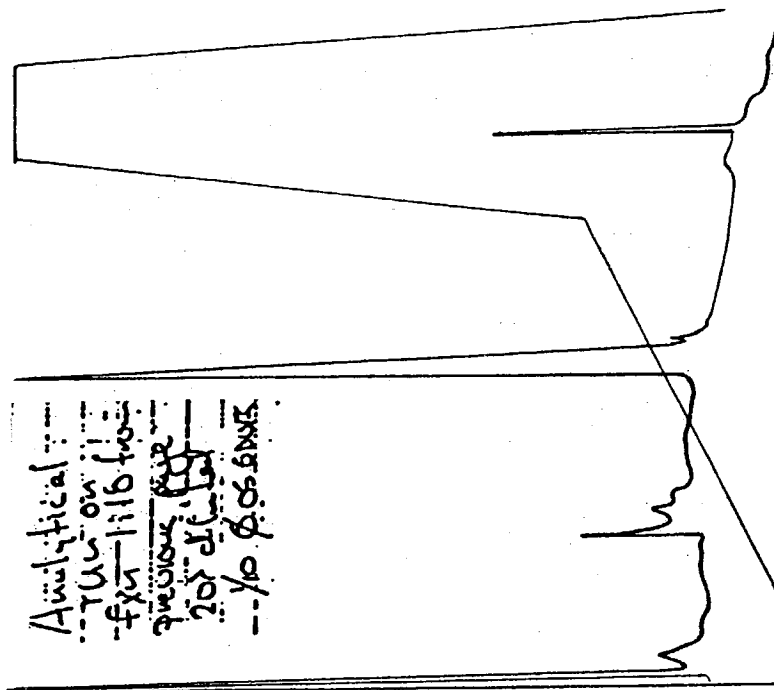 Analytical
run on
fxn 11+16 from
previous page
20λ diluted
1/10 0.05